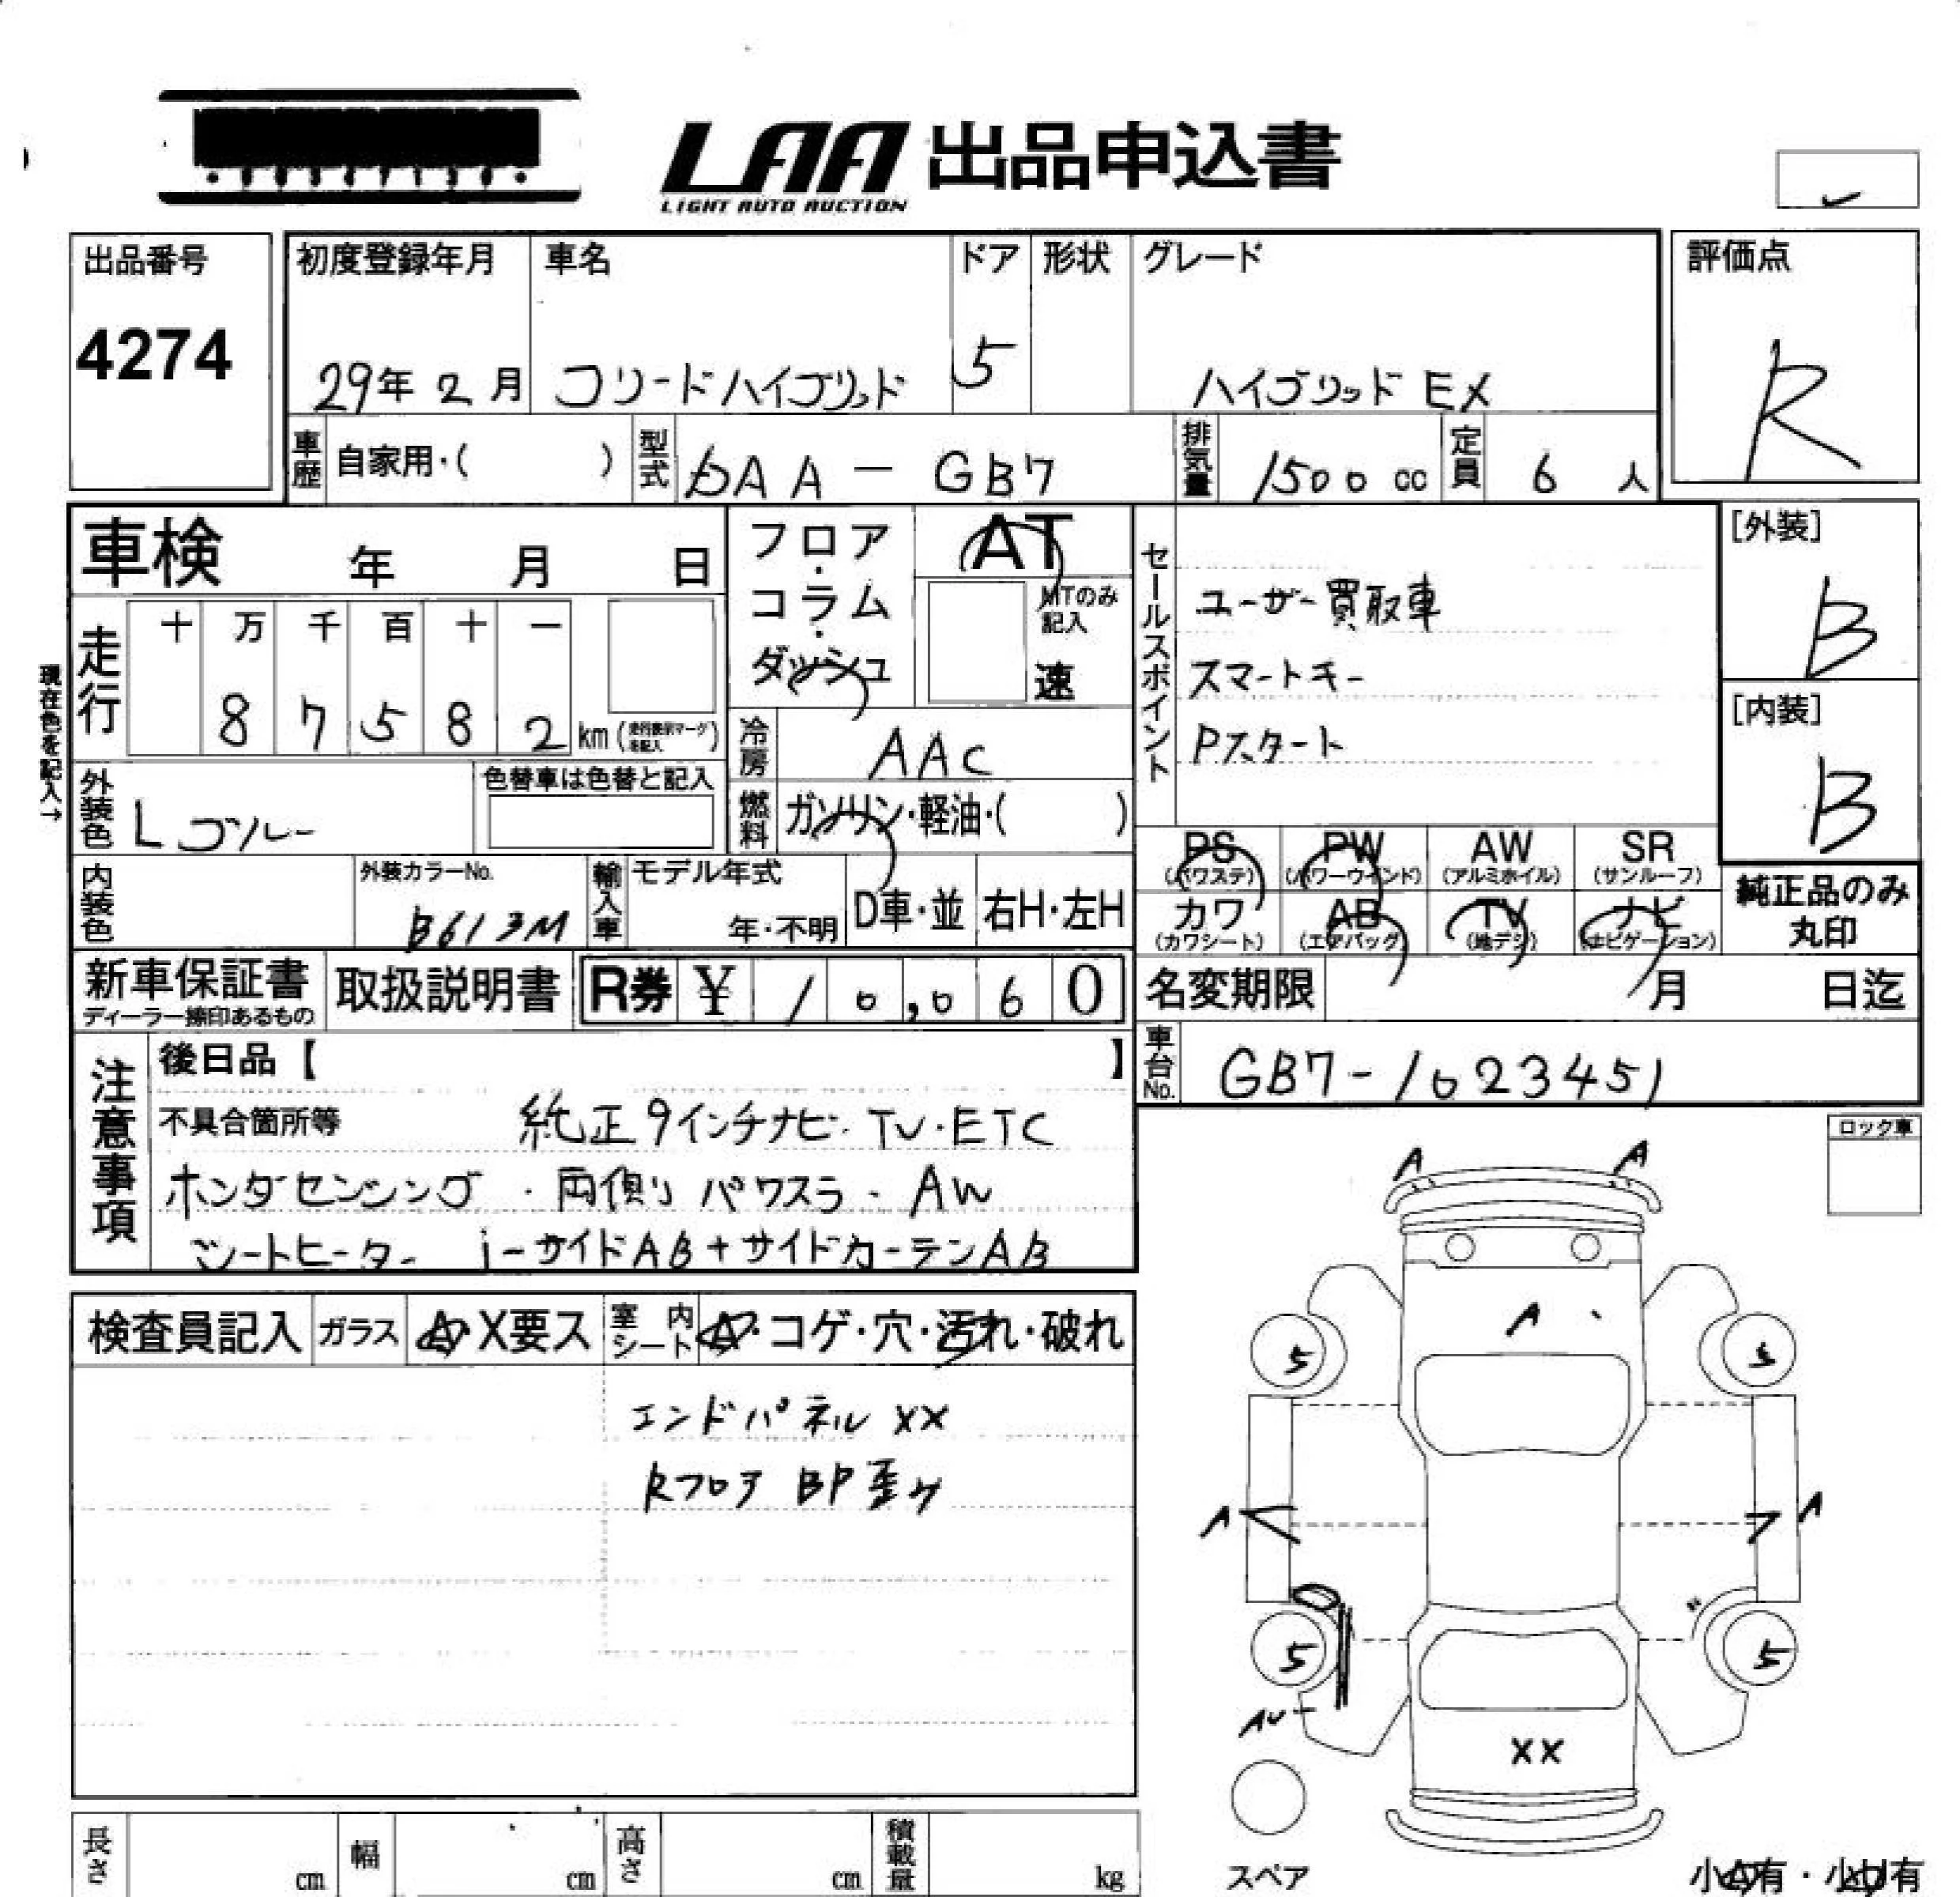 LAA 出品申込書
LIGHT AUTO AUCTION
出品番号
4274
初度登録年月 車名 ドア 形状 グレード
29年 2月 フリードハイブリッド 5 ハイブリッド EX
評価点
R
車歴 自家用・( ) 型式 DAA-GB7 排気量 1500 cc 定員 6 人
車検 年 月 日
フロア・コラム・ダッシュ
AT
MTのみ記入
速
走行 十 万 千 百 十 一
8 7 5 8 2 km (走行表示マークを記入)
現在色を記入→
冷房 AAC
燃料 ガソリン・軽油・( )
外装色 Lブルー
色替車は色替と記入
内装色
外装カラーNo.
B613M
輸入車 モデル年式
年・不明 D車・並 右H・左H
セールスポイント
ユーザー買取車
スマートキー
Pスタート
[外装]
B
[内装]
B
PS PW AW SR
(パワステ) (パワーウインド) (アルミホイル) (サンルーフ)
カワ AB TV ナビ
(カワシート) (エアバッグ) (地デジ) (ナビゲーション)
純正品のみ
丸印
新車保証書 取扱説明書 R券 ¥ 10,060
ディーラー捺印あるもの
名変期限 月 日迄
車台No. GB7-1023451
注意事項
後日品【 】
不具合箇所等 純正9インチナビ・TV・ETC
ホンダセンシング・両側パワスラ・AW
シートヒーター i-サイドAB+サイドカーテンAB
ロック車
検査員記入 ガラス A・X要ス 室内シート A・コゲ・穴・汚れ・破れ
エンドパネル XX
Rフロア BP歪み
A A
A
5 5
A A
5 5
AU
XX
スペア
小A有・小U有
長さ cm 幅 cm 高さ cm 積載量 kg